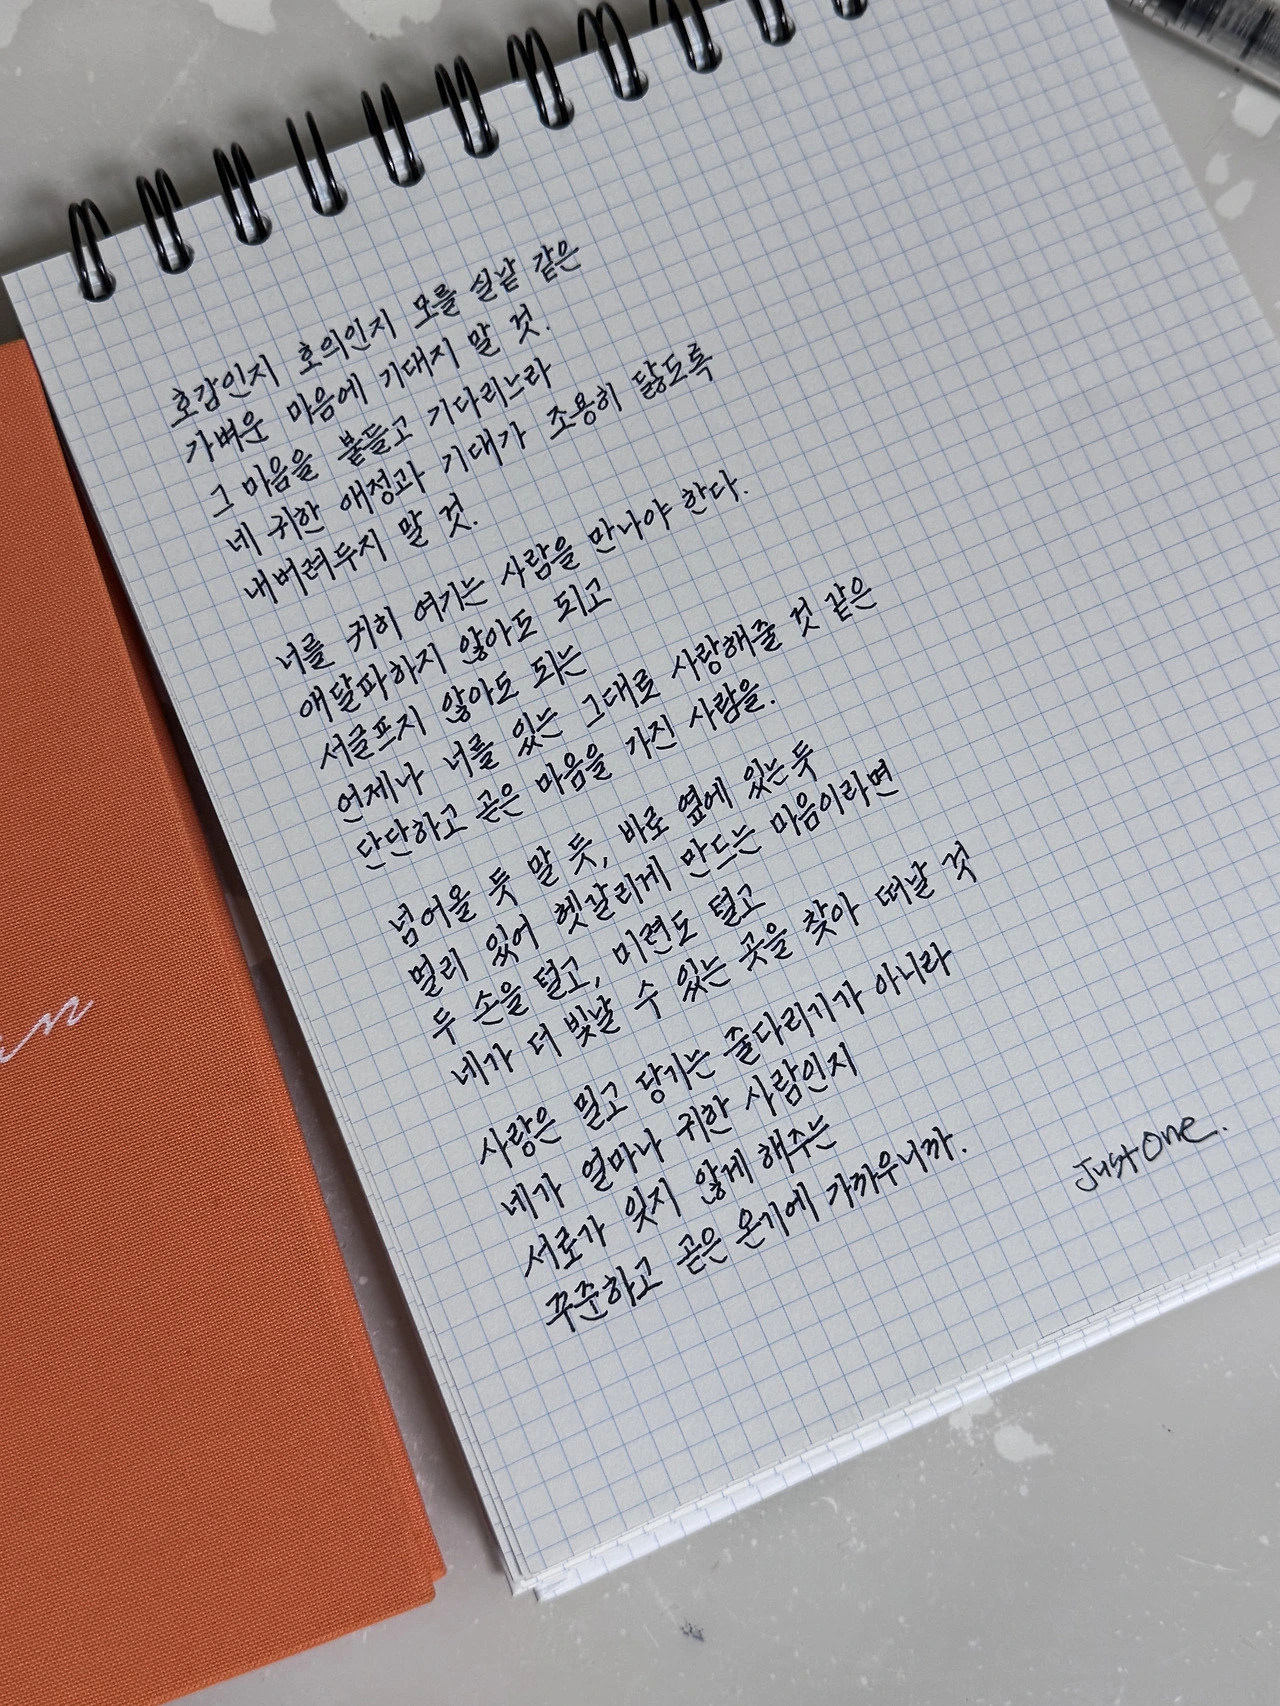 호감인지 호의인지 모를 실낱 같은
가벼운 마음에 기대지 말 것.
그 마음을 붙들고 기다리느라
네 귀한 애정과 기대가 조용히 닳도록
내버려두지 말 것.
너를 귀히 여기는 사람을 만나야 한다.
애달파하지 않아도 되고
서글프지 않아도 되는
언제나 너를 있는 그대로 사랑해줄 것 같은
단단하고 곧은 마음을 가진 사람을.
넘어올 듯 말 듯, 바로 옆에 있는듯
멀리 있어 헷갈리게 만드는 마음이라면
두 손을 털고, 미련도 털고
네가 더 빛날 수 있는 곳을 찾아 떠날 것
사랑은 밀고 당기는 줄다리기가 아니라
네가 얼마나 귀한 사람인지
서로가 잊지 않게 해주는
꾸준하고 곧은 온기에 가까우니까.
JustOne.